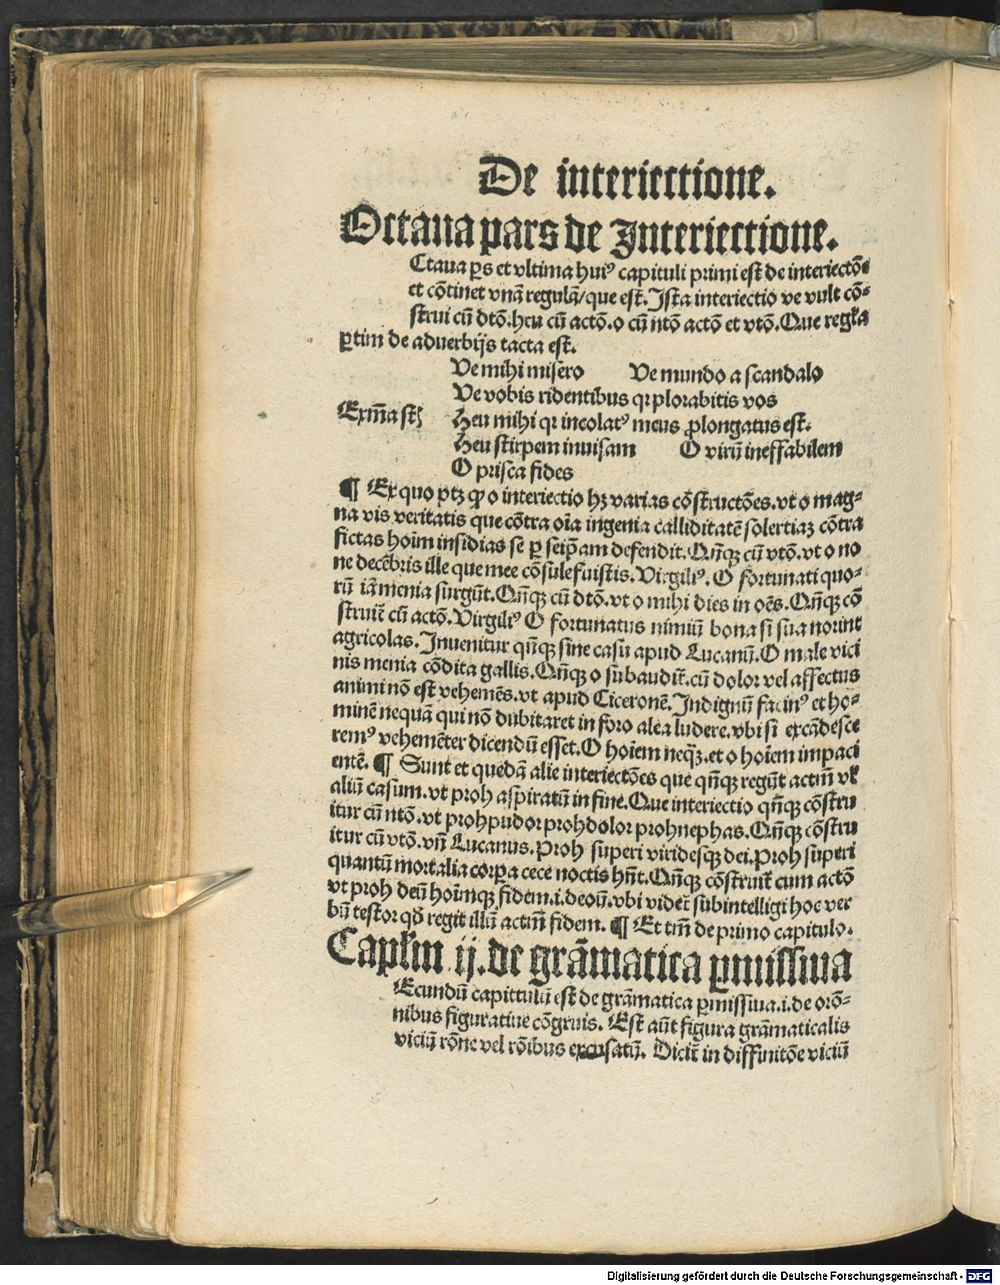 De interiectione.
Octaua pars de Interiectione.
Ctaua ꝑs et vltima huiꝰ capituli primi est de interiectōe
et cōtinet vnā regulā/que est. Ista interiectio ve vult cō-
strui cū dtō. heu cū actō. o cū ntō actō et vtō. Que regła
ꝑtim de aduerbijs tacta est.
Ve mihi misero Ve mundo a scandalo
Ve vobis ridentibus qꝛ plorabitis vos
Exm̄a st̄ Heu mihi qꝛ incolatꝰ meus ꝓlongatus est.
Heu stirpem inuisam O virū ineffabilem
O prisca fides
¶ Ex quo ptꝫ ꝙ o interiectio hꝫ varias cōstructōes. vt o mag-
na vis veritatis que cōtra oīa ingenia calliditatē solertiaꝫ cōtra
fictas hoīm insidias se ꝑ seip̄am defendit. Qn̄qꝫ cū vtō. vt o no
ne decēbris ille que mee cōsule fuistis. Virgiliꝰ. O fortunati quo-
rū iā menia surgūt. Qn̄qꝫ cū dtō. vt o mihi dies in oēs. Qn̄qꝫ cō
struit̄ cū actō. Virgiliꝰ O fortunatus nimiū bona si sua norint
agricolas. Inuenitur qn̄qꝫ sine casu apud Lucanū. O male vici
nis menia cōdita gallis. Qn̄qꝫ o subaudit̄. cū dolor vel affectus
animi nō est vehemēs. vt apud Ciceronē. Indignū facinꝰ et ho-
minē nequā qui nō dubitaret in foro alea ludere. vbi si excādesce
remꝰ vehemēter dicendū esset. O hoīem neqꝫ̄. et o hoīem impaci
entē. ¶ Sunt et quedā alie interiectōes que qn̄qꝫ regūt actm̄ vł
aliū casum. vt proh aspiratū in fine. Que interiectio qn̄qꝫ cōstru
itur cū ntō. vt proh pudor proh dolor proh nephas. Qn̄qꝫ cōstru
itur cū vtō. vn̄ Lucanus. Proh superi viridesqꝫ dei. Proh superi
quantū mortalia corꝑa cece noctis hn̄t. Qn̄qꝫ cōstruit̄ cum actō
vt proh deū hoīmqꝫ fidem. i. deoū. vbi videt̄ subintelligi hoc ver
bū testor qđ regit illū actm̄ fidem. ¶ Et tm̄ de primo capitulo.
Capłm .ij. de grāmatica ꝑmissiua
Ecundū capittulū est de grāmatica ꝑmissiua. i. de orō-
nibus figuratiue cōgruis. Est aūt figura grāmaticalis
viciū rōne vel rōibus excusatū. Dicit̄ in diffinitōe viciū
Digitalisierung gefördert durch die Deutsche Forschungsgemeinschaft - DFG